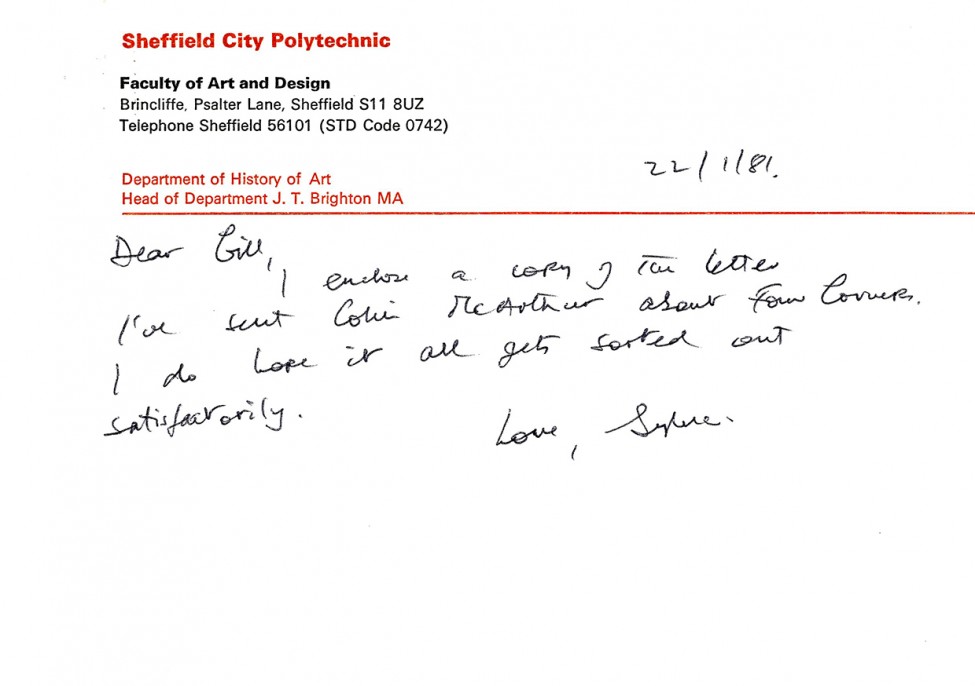 Sheffield City Polytechnic
Faculty of Art and Design
Brincliffe, Psalter Lane, Sheffield S11 8UZ
Telephone Sheffield 56101 (STD Code 0742)
22/1/81.
Department of History of Art
Head of Department J. T. Brighton MA
Dear Gill,
I enclose a copy of the letter
I've sent Colin McArthur about Four Corners.
I do hope it all gets sorted out
satisfactorily.
Love,